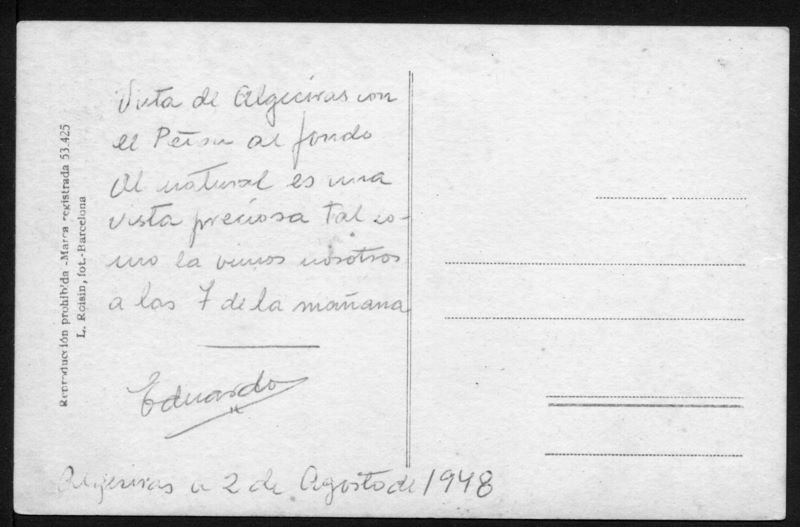 Vista de Algeciras con
el Peñon al fondo
Al natural es una
vista preciosa tal co-
mo la vimos nosotros
a las 7 de la mañana
Eduardo
Algeciras a 2 de Agosto de 1948
Reproducción prohibida - Marca registrada 53.425
L. Roisin, fot. - Barcelona